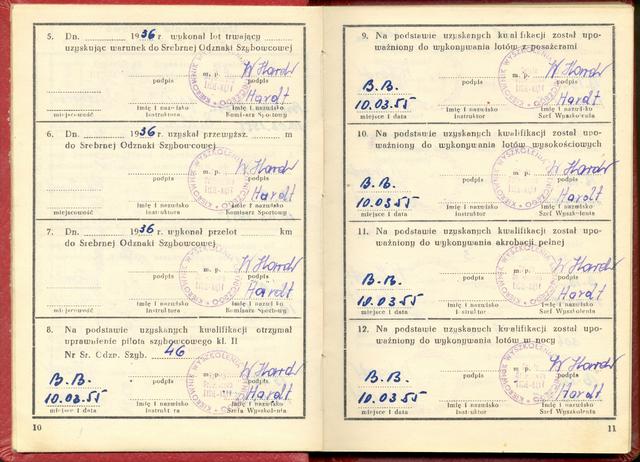 5. Dn. 1936 r. wykonał lot trwający
uzyskując warunek do Srebrnej Odznaki Szybowcowej
W Hardt
podpis m. p. podpis
Hardt
miejscowość Imię i nazwisko Imię i nazwisko
Instruktora Komisarz Sportowy
6. Dn. 1936 r. uzyskał przewyższ. m
do Srebrnej Odznaki Szybowcowej
W Hardt
podpis m. p. podpis
Hardt
miejscowość Imię i nazwisko Imię i nazwisko
Instruktora Komisarz Sportowy
7. Dn. 1936 r. wykonał przelot km
do Srebrnej Odznaki Szybowcowej
W Hardt
podpis m. p. podpis
Hardt
miejscowość Imię i nazwisko Imię i nazwisko
Instruktora Komisarz Sportowy
8. Na podstawie uzyskanych kwalifikacji otrzymał
uprawnienie pilota szybowcowego kl. II
Nr Sr. Odzn. Szyb. 46
B.B. W Hardt
podpis podpis
10.03.55 Hardt
miejsce i data Imię i nazwisko Imię i nazwisko
Instruktora Szefa Wyszkolenia
10
9. Na podstawie uzyskanych kwalifikacji został upo-
ważniony do wykonywania lotów z pasażerami
W Hardt
B.B. podpis m. p. podpis
10.03.55 Hardt
miejsce i data Imię i nazwisko Imię i nazwisko
Instruktor Szef Wyszkolenia
10. Na podstawie uzyskanych kwalifikacji został upo-
ważniony do wykonywania lotów wysokościowych
W Hardt
B.B. podpis podpis
10.03.55 Hardt
miejsce i data Imię i nazwisko Imię i nazwisko
Instruktor Szef Wyszkolenia
11. Na podstawie uzyskanych kwalifikacji został upo-
ważniony do wykonywania akrobacji pełnej
W Hardt
B.B. podpis m. p. podpis
10.03.55 Hardt
miejsce i data Imię i nazwisko Imię i nazwisko
Instruktor Szef Wyszkolenia
12. Na podstawie uzyskanych kwalifikacji został upo-
ważniony do wykonywania lotów w nocy
W Hardt
B.B. podpis podpis
10.03.55 Hardt
miejsce i data Imię i nazwisko Imię i nazwisko
Instruktor Szef Wyszkolenia
11